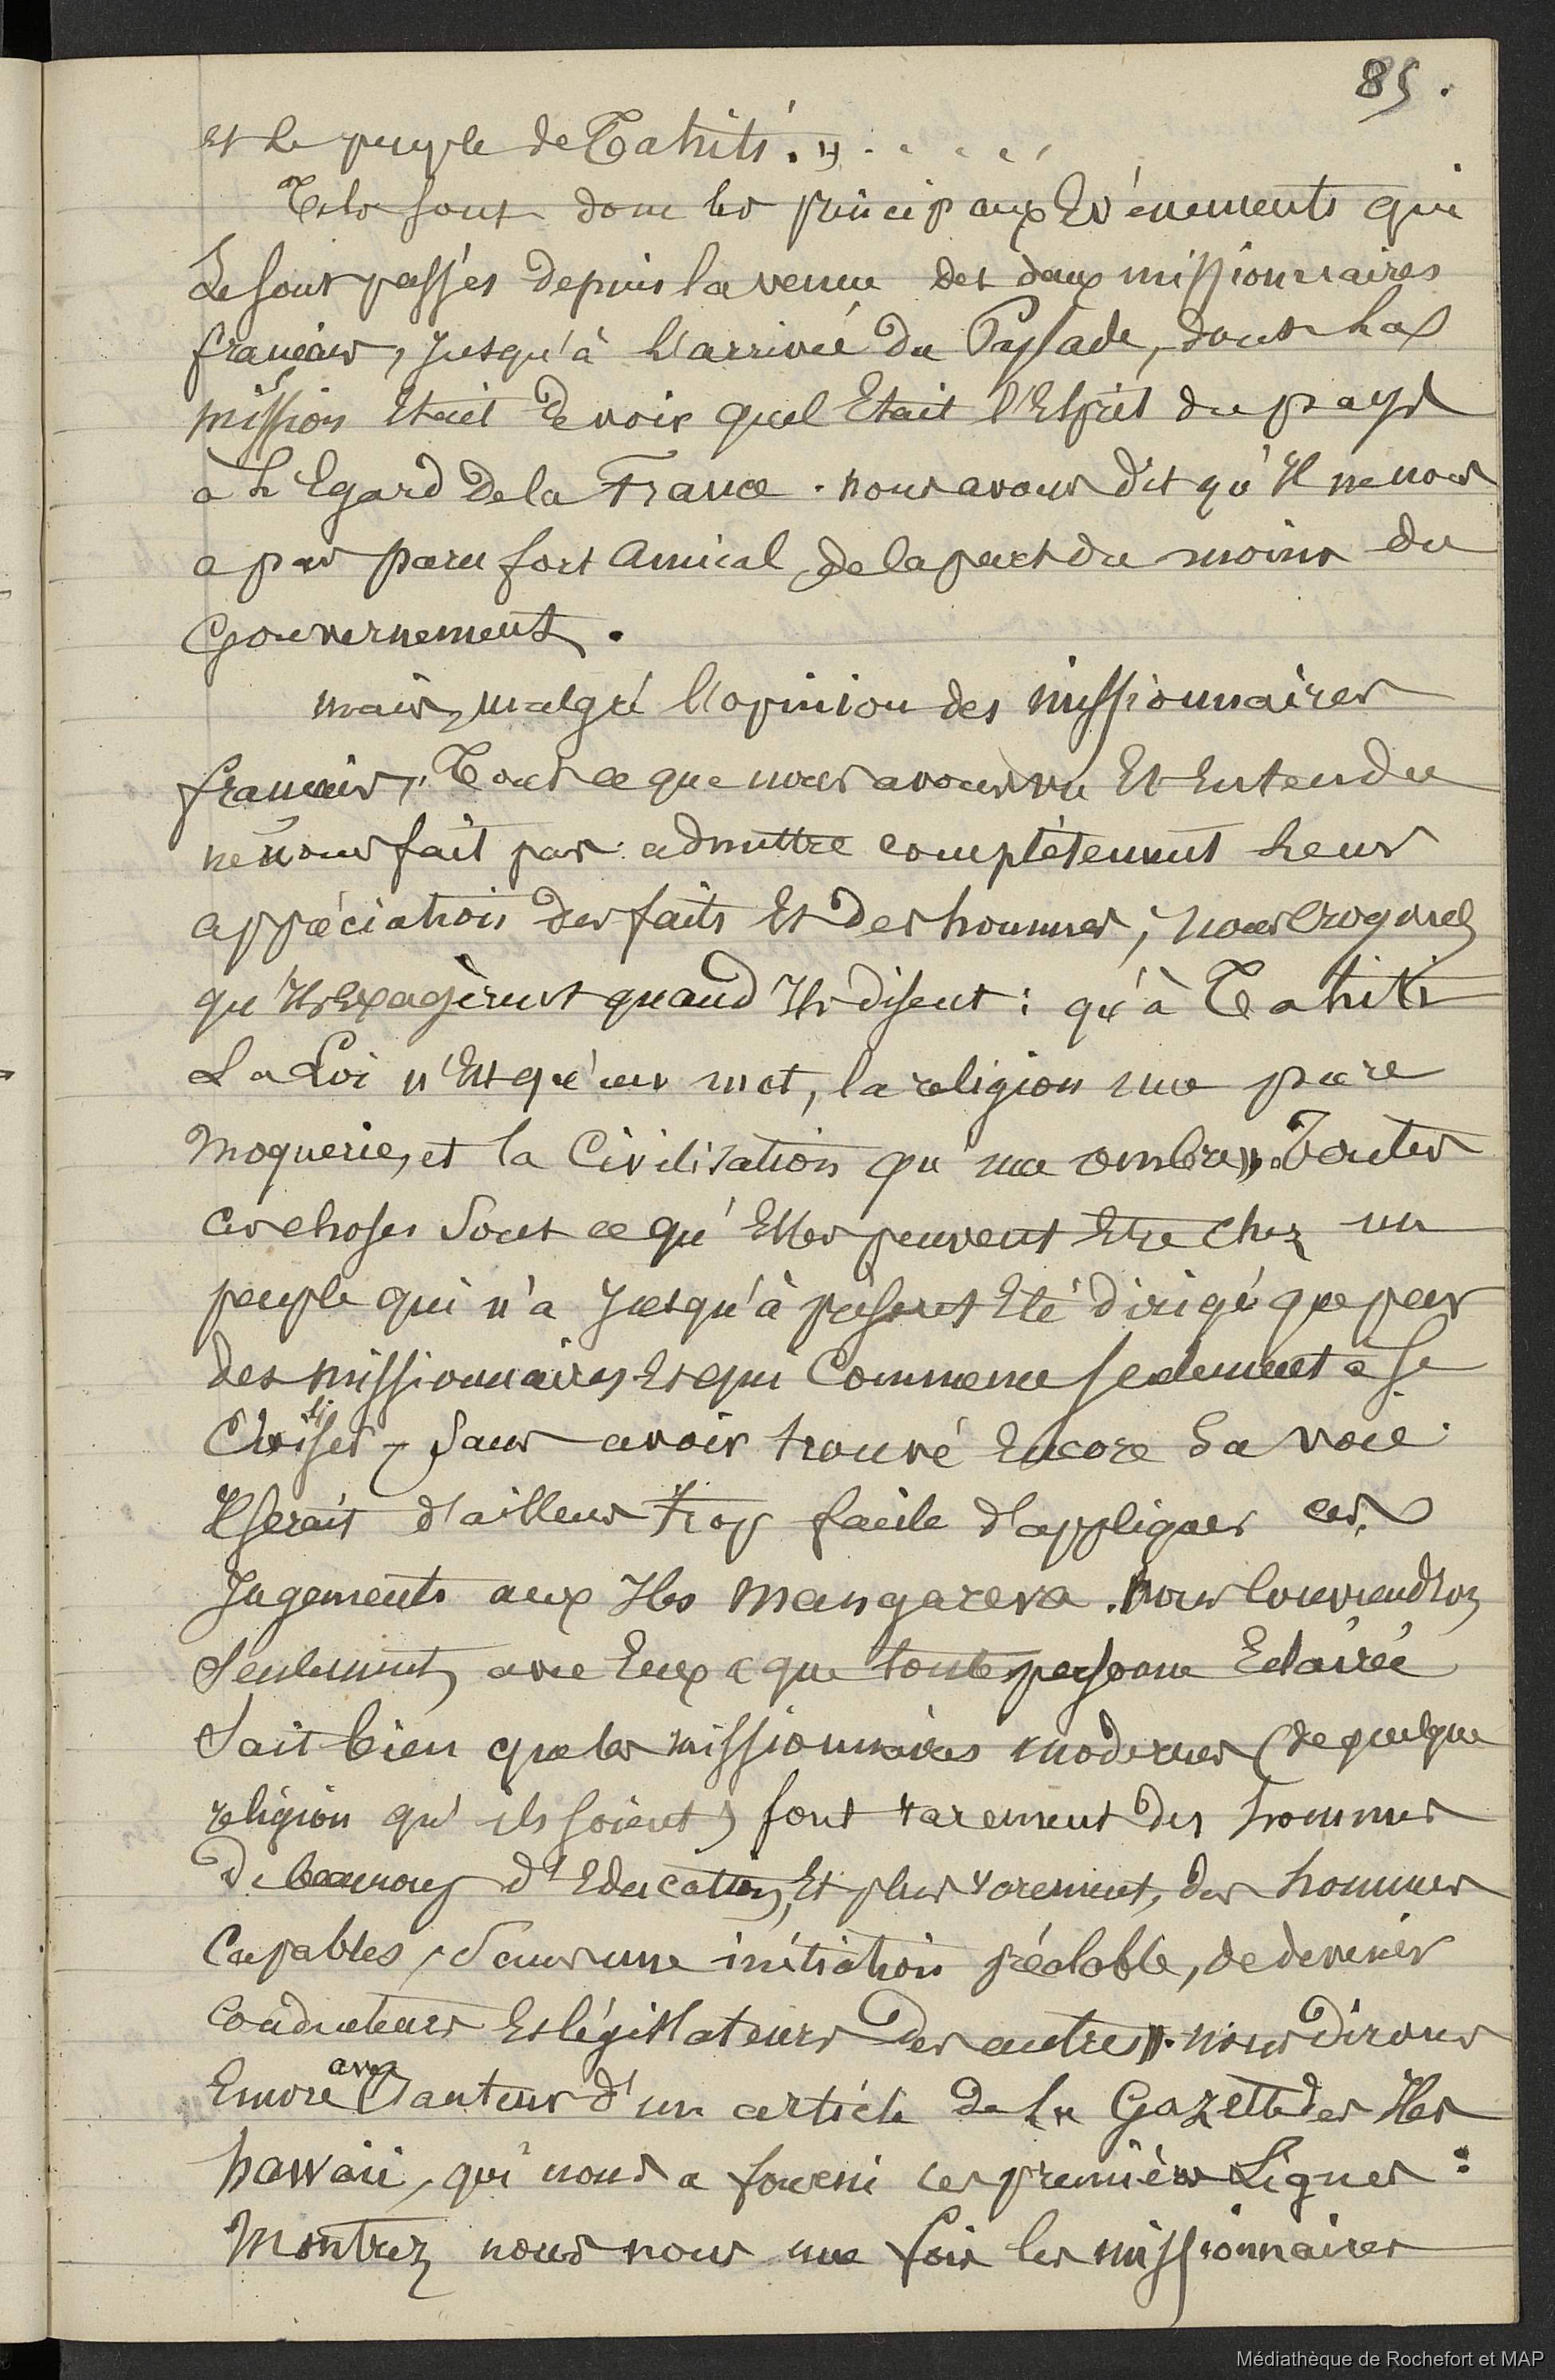 85.
et le peuple de Tahiti. » . . . . .
Tels sont donc les principaux Evénements qui
Se sont passés depuis la venue des deux missionnaires
français, jusqu'à l'arrivée du Pylade, dont la
mission Etait de voir quel Etait l'Esprit du pays
à l'Egard de la France. nous avons dit qu'Il ne nous
a pas paru fort amical, de la part du moins du
Gouvernement.
mais, malgré l'opinion des missionnaires
français, Tout ce que nous avons vu Et Entendu
ne nous fait pas admettre complètement leur
appréciation des faits Et des hommes; nous croyons
qu'Ils Exagèrent quand Ils disent: qu'à Tahiti
La Loi n'Est qu'un mot, la religion une pure
Moquerie, et la Civilisation qu'une ombre ». Toutes
Ces choses Sont ce qu'Elles peuvent Etre chez un
peuple qui n'a Jusqu'à présent Eté dirigé que par
des missionnaires Et qui Commence seulement à se
Civiliser, Sans avoir trouvé Encore Sa voie.
Il serait d'ailleurs trop facile d'appliquer ces
Jugements aux Iles Mangareva. Nous Conviendrons
Seulement, avec Eux que toute personne Eclairée
Sait bien que les missionnaires modernes (de quelque
religion qu'ils soient) sont rarement des hommes
de beaucoup d'Education, Et plus rarement, des hommes
Capables, Sans une initiation préalable, de devenir
Conducteurs Et législateurs des autres ». nous dirons
Encore avec l'auteur d'un article de la Gazette des Iles
hawaii, qui nous a fourni ces premières Lignes:
Montrez nous nous une fois les missionnaires
Médiathèque de Rochefort et MAP